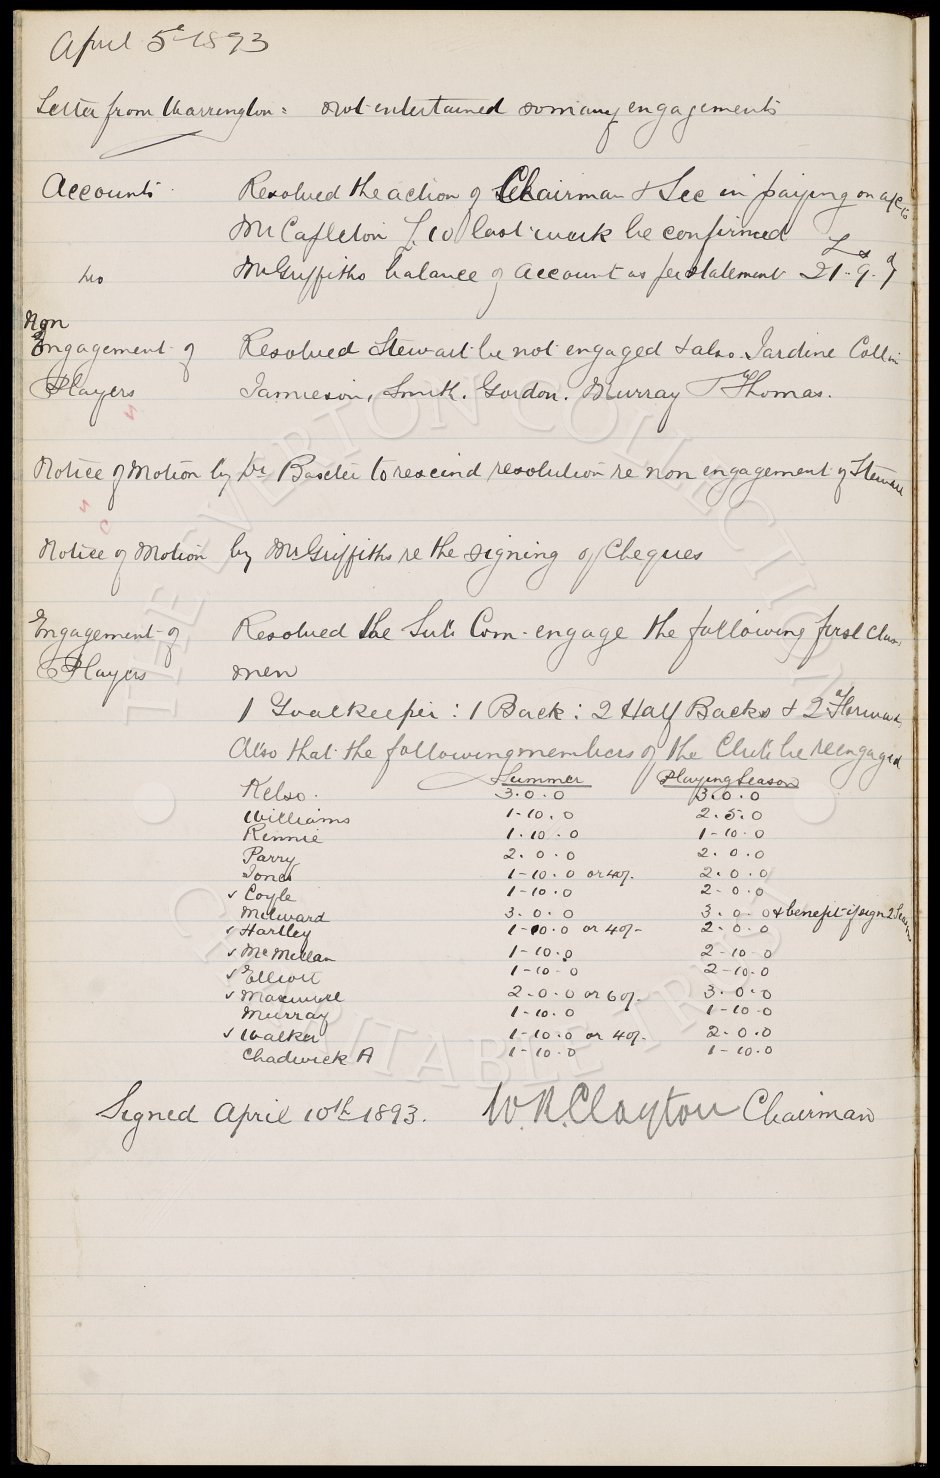 April 5th 1893
Letter from Warrington = not entertained so many engagements
Accounts Resolved the action of Chairman & Sec in paying on a/c to
Mr Capleton £10 last week be confirmed £ s d
Mr Griffiths balance of account as per statement 21-9-7
Non
Engagement of Resolved Stewart be not engaged & also Jardine Collin
Players Jamieson, Smith. Gordon. Murray Thomas.
Notice of Motion by Dr Baxter to rescind resolution re non engagement of Stewart
Notice of Motion by Mr Griffiths re the signing of Cheques
Engagement of Resolved the Sub Com. engage the following first class
Players men
1 Goalkeeper : 1 Back : 2 Half Backs & 2 Forwards
Also that the following members of the Club be reengaged
Summer Playing Season
Kelso. 3.0.0 3.0.0
Williams 1-10.0 2.5.0
Rennie 1.10.0 1-10.0
Parry 2.0.0 2.0.0
Jones 1-10.0 or 40/- 2.0.0
✓ Coyle 1-10.0 2-0.0
Milward 3.0.0 3.0.0 & benefit if sign 2 Seasons
✓ Hartley 1-10.0 or 40/- 2-0.0
✓ McMillan 1-10.0 2-10-0
✓ Elliott 1-10-0 2-10.0
✓ Maxwell 2.0.0 or 60/- 3.0.0
Murray 1-10.0 1-10-0
✓ Walker 1-10.0 or 40/- 2.0.0
Chadwick A 1-10.0 1-10.0
Signed April 10th 1893. W.R. Clayton Chairman
THE EVERTON COLLECTION
CHARITABLE TRUST